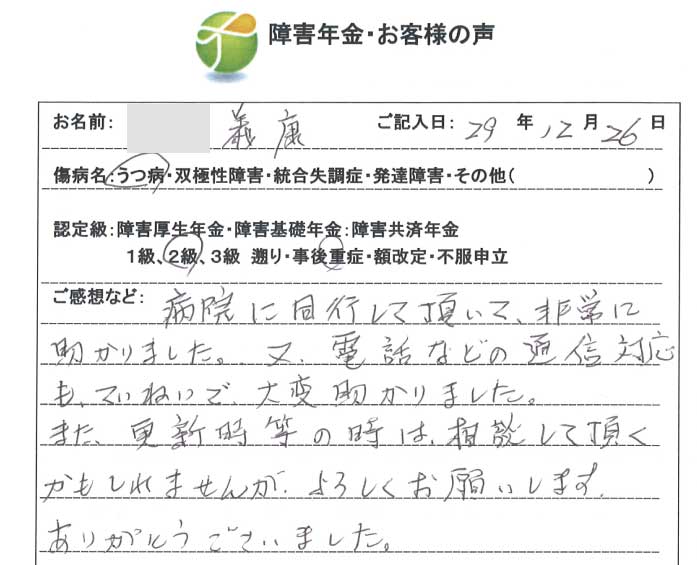 障害年金・お客様の声
お名前: 義康 ご記入日: 29 年 12 月 26 日
傷病名:うつ病・双極性障害・統合失調症・発達障害・その他( )
認定級:障害厚生年金・障害基礎年金:障害共済年金
1級、2級、3級 遡り・事後重症・額改定・不服申立
ご感想など: 病院に同行して頂いて、非常に
助かりました。又、電話などの通信対応
も、ていねいで、大変助かりました。
また、更新時等の時は、相談して頂く
かもしれませんが、よろしくお願いします。
ありがとうございました。